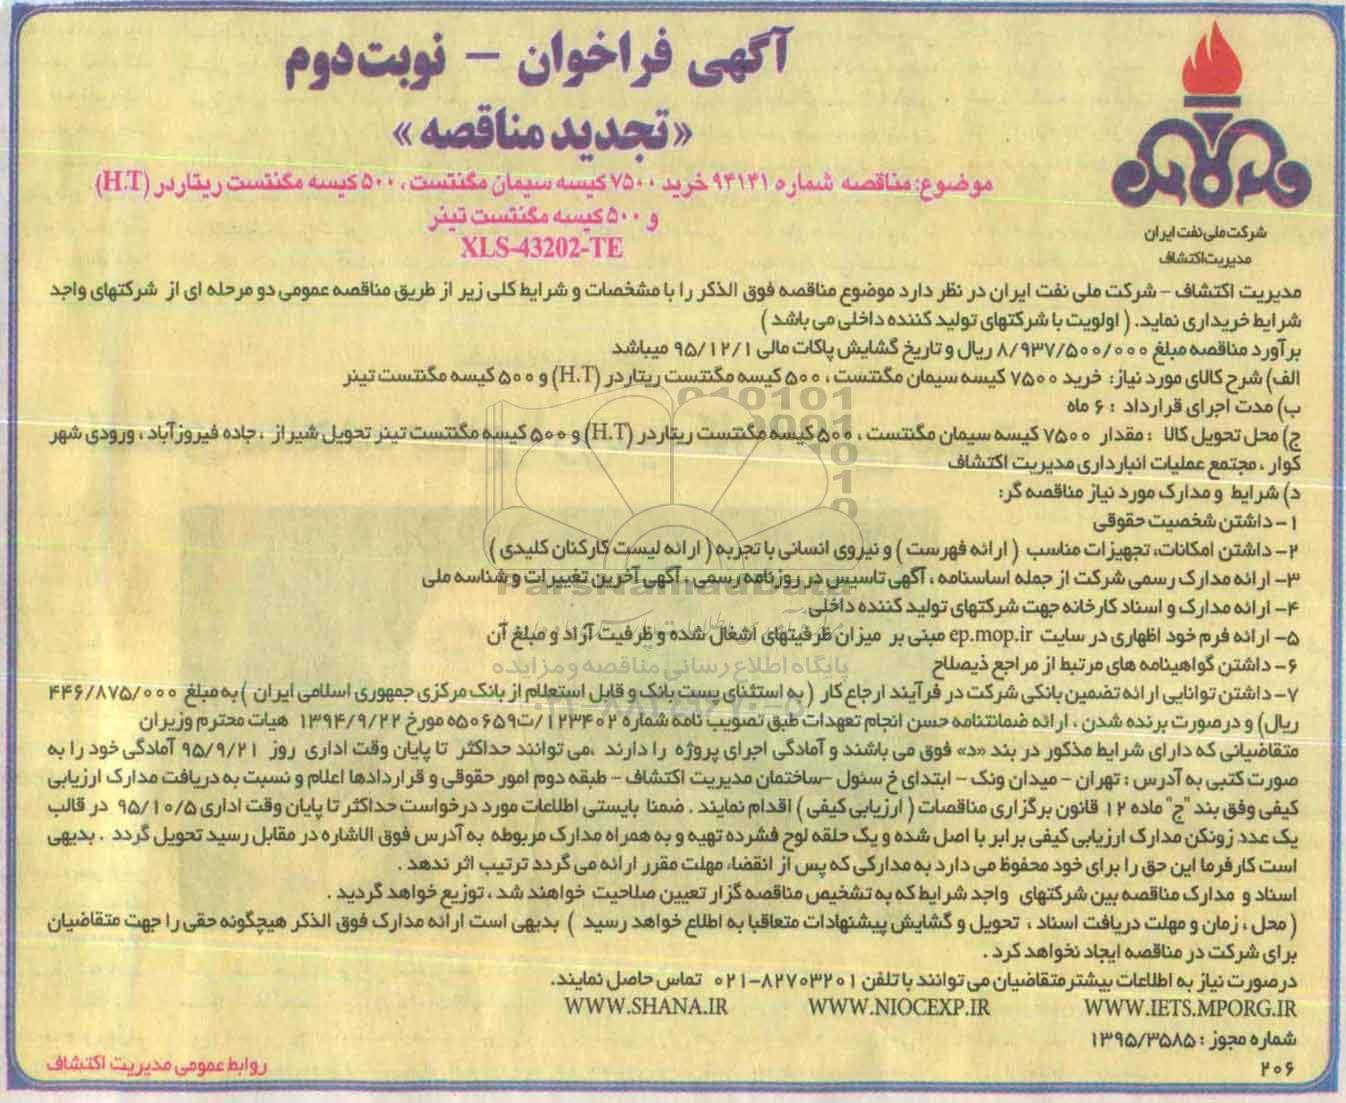 آگهی فراخوان – نوبت دوم
«تجدید مناقصه»
موضوع: مناقصه شماره ۹۴۱۳۱ خرید ۷۵۰۰ کیسه سیمان مگنتست ، ۵۰۰ کیسه مگنتست ریتاردر (H.T)
و ۵۰۰ کیسه مگنتست تینر
XLS-43202-TE
شرکت ملی نفت ایران
مدیریت اکتشاف
مدیریت اکتشاف – شرکت ملی نفت ایران در نظر دارد موضوع مناقصه فوق الذکر را با مشخصات و شرایط کلی زیر از طریق مناقصه عمومی دو مرحله ای از شرکتهای واجد
شرایط خریداری نماید. ( اولویت با شرکتهای تولید کننده داخلی می باشد )
برآورد مناقصه مبلغ ۸/۹۳۷/۵۰۰/۰۰۰ ریال و تاریخ گشایش پاکات مالی ۹۵/۱۲/۱ میباشد
الف) شرح کالای مورد نیاز: خرید ۷۵۰۰ کیسه سیمان مگنتست ، ۵۰۰ کیسه مگنتست ریتاردر (H.T) و ۵۰۰ کیسه مگنتست تینر
ب) مدت اجرای قرارداد : ۶ ماه
ج) محل تحویل کالا : مقدار ۷۵۰۰ کیسه سیمان مگنتست ، ۵۰۰ کیسه مگنتست ریتاردر (H.T) و ۵۰۰ کیسه مگنتست تینر تحویل شیراز ، جاده فیروزآباد ، ورودی شهر
کوار ، مجتمع عملیات انبارداری مدیریت اکتشاف
د) شرایط و مدارک مورد نیاز مناقصه گر:
۱- داشتن شخصیت حقوقی
۲- داشتن امکانات، تجهیزات مناسب ( ارائه فهرست ) و نیروی انسانی با تجربه ( ارائه لیست کارکنان کلیدی )
۳- ارائه مدارک رسمی شرکت از جمله اساسنامه ، آگهی تاسیس در روزنامه رسمی ، آگهی آخرین تغییرات و شناسه ملی
۴- ارائه مدارک و اسناد کارخانه جهت شرکتهای تولید کننده داخلی
۵- ارائه فرم خود اظهاری در سایت ep.mop.ir مبنی بر میزان ظرفیتهای اشغال شده و ظرفیت آزاد و مبلغ آن
۶- داشتن گواهینامه های مرتبط از مراجع ذیصلاح
۷- داشتن توانایی ارائه تضمین بانکی شرکت در فرآیند ارجاع کار ( به استثنای پست بانک و قابل استعلام از بانک مرکزی جمهوری اسلامی ایران ) به مبلغ ۴۴۶/۸۷۵/۰۰۰
ریال) و درصورت برنده شدن ، ارائه ضمانتنامه حسن انجام تعهدات طبق تصویب نامه شماره ۱۲۳۴۰۲/ت۵۰۶۵۹ه مورخ ۱۳۹۴/۹/۲۲ هیات محترم وزیران
متقاضیانی که دارای شرایط مذکور در بند «د» فوق می باشند و آمادگی اجرای پروژه را دارند ،می توانند حداکثر تا پایان وقت اداری روز ۹۵/۹/۲۱ آمادگی خود را به
صورت کتبی به آدرس : تهران – میدان ونک – ابتدای خ سئول –ساختمان مدیریت اکتشاف – طبقه دوم امور حقوقی و قراردادها اعلام و نسبت به دریافت مدارک ارزیابی
کیفی وفق بند "ج" ماده ۱۲ قانون برگزاری مناقصات ( ارزیابی کیفی ) اقدام نمایند . ضمنا بایستی اطلاعات مورد درخواست حداکثر تا پایان وقت اداری ۹۵/۱۰/۵ در قالب
یک عدد زونکن مدارک ارزیابی کیفی برابر با اصل شده و یک حلقه لوح فشرده تهیه و به همراه مدارک مربوطه به آدرس فوق الاشاره در مقابل رسید تحویل گردد . بدیهی
است کارفرما این حق را برای خود محفوظ می دارد به مدارکی که پس از انقضاء مهلت مقرر ارائه می گردد ترتیب اثر ندهد .
اسناد و مدارک مناقصه بین شرکتهای واجد شرایط که به تشخیص مناقصه گزار تعیین صلاحیت خواهند شد ، توزیع خواهد گردید .
( محل ، زمان و مهلت دریافت اسناد ، تحویل و گشایش پیشنهادات متعاقبا به اطلاع خواهد رسید ) بدیهی است ارائه مدارک فوق الذکر هیچگونه حقی را جهت متقاضیان
برای شرکت در مناقصه ایجاد نخواهد کرد .
درصورت نیاز به اطلاعات بیشتر متقاضیان می توانند با تلفن ۸۲۷۰۳۲۰۱-۰۲۱ تماس حاصل نمایند.
WWW.IETS.MPORG.IR WWW.NIOCEXP.IR WWW.SHANA.IR
شماره مجوز : ۱۳۹۵/۳۵۸۵
۲۰۶
روابط عمومی مدیریت اکتشاف
ParsNamadData
پایگاه اطلاع رسانی مناقصه و مزایده